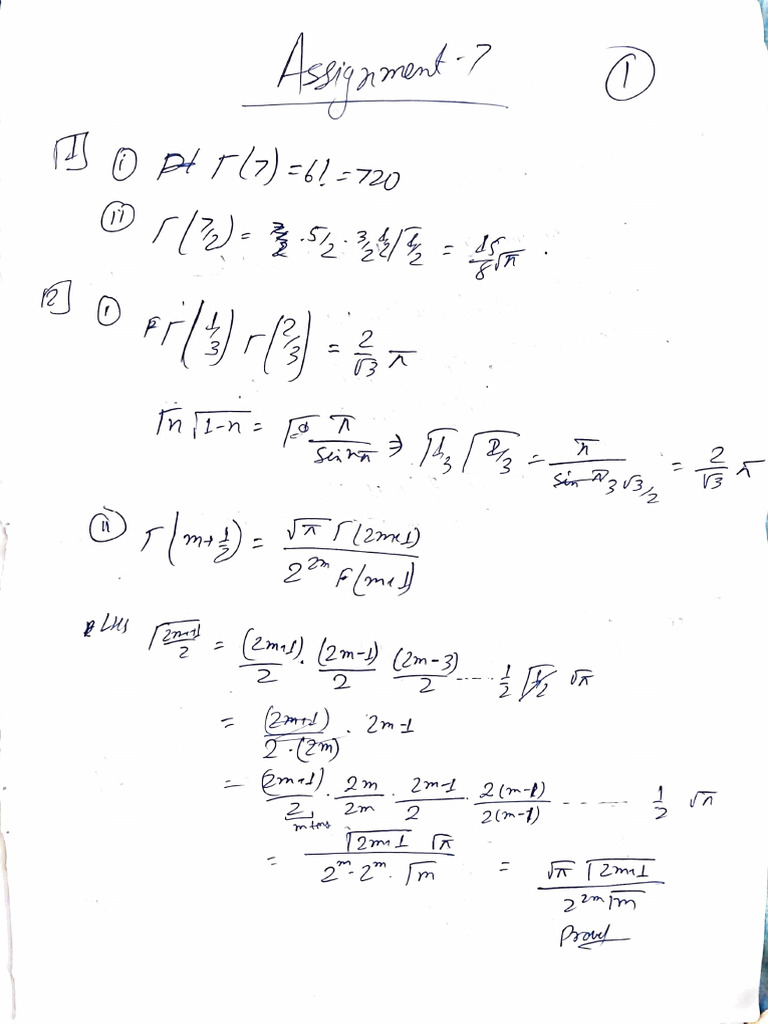 Assignment-7
①
1] ⓘ Γ(7) = 6! = 720
ⓘⓘ Γ(7/2) = · 5/2 · 3/2 · 1/2 √1/2 = 15/8 √π .
2] ⓘ Γ(1/3) Γ(2/3) = 2/√3 π
Γn Γ1-n = π/sin nπ ⇒ Γ1/3 Γ2/3 = π/sin π/3 √3/2 = 2/√3 π
ⓘⓘ Γ(m+1/2) = √π Γ(2m+1) / 2^2m Γ(m+1)
LHS Γ2m+1/2 = (2m+1)/2 · (2m-1)/2 (2m-3)/2 ---- 1/2 Γ1/2 √π
= (2m+1)/2·(2m) · 2m-1
= (2m+1)/2 · 2m/2m · 2m-1/2 · 2(m-1)/2(m-1) ------ 1/2 √π
= Γ2m+1 √π / 2^m · 2^m · Γm = √π Γ2m+1 / 2^2m Γm
Proved